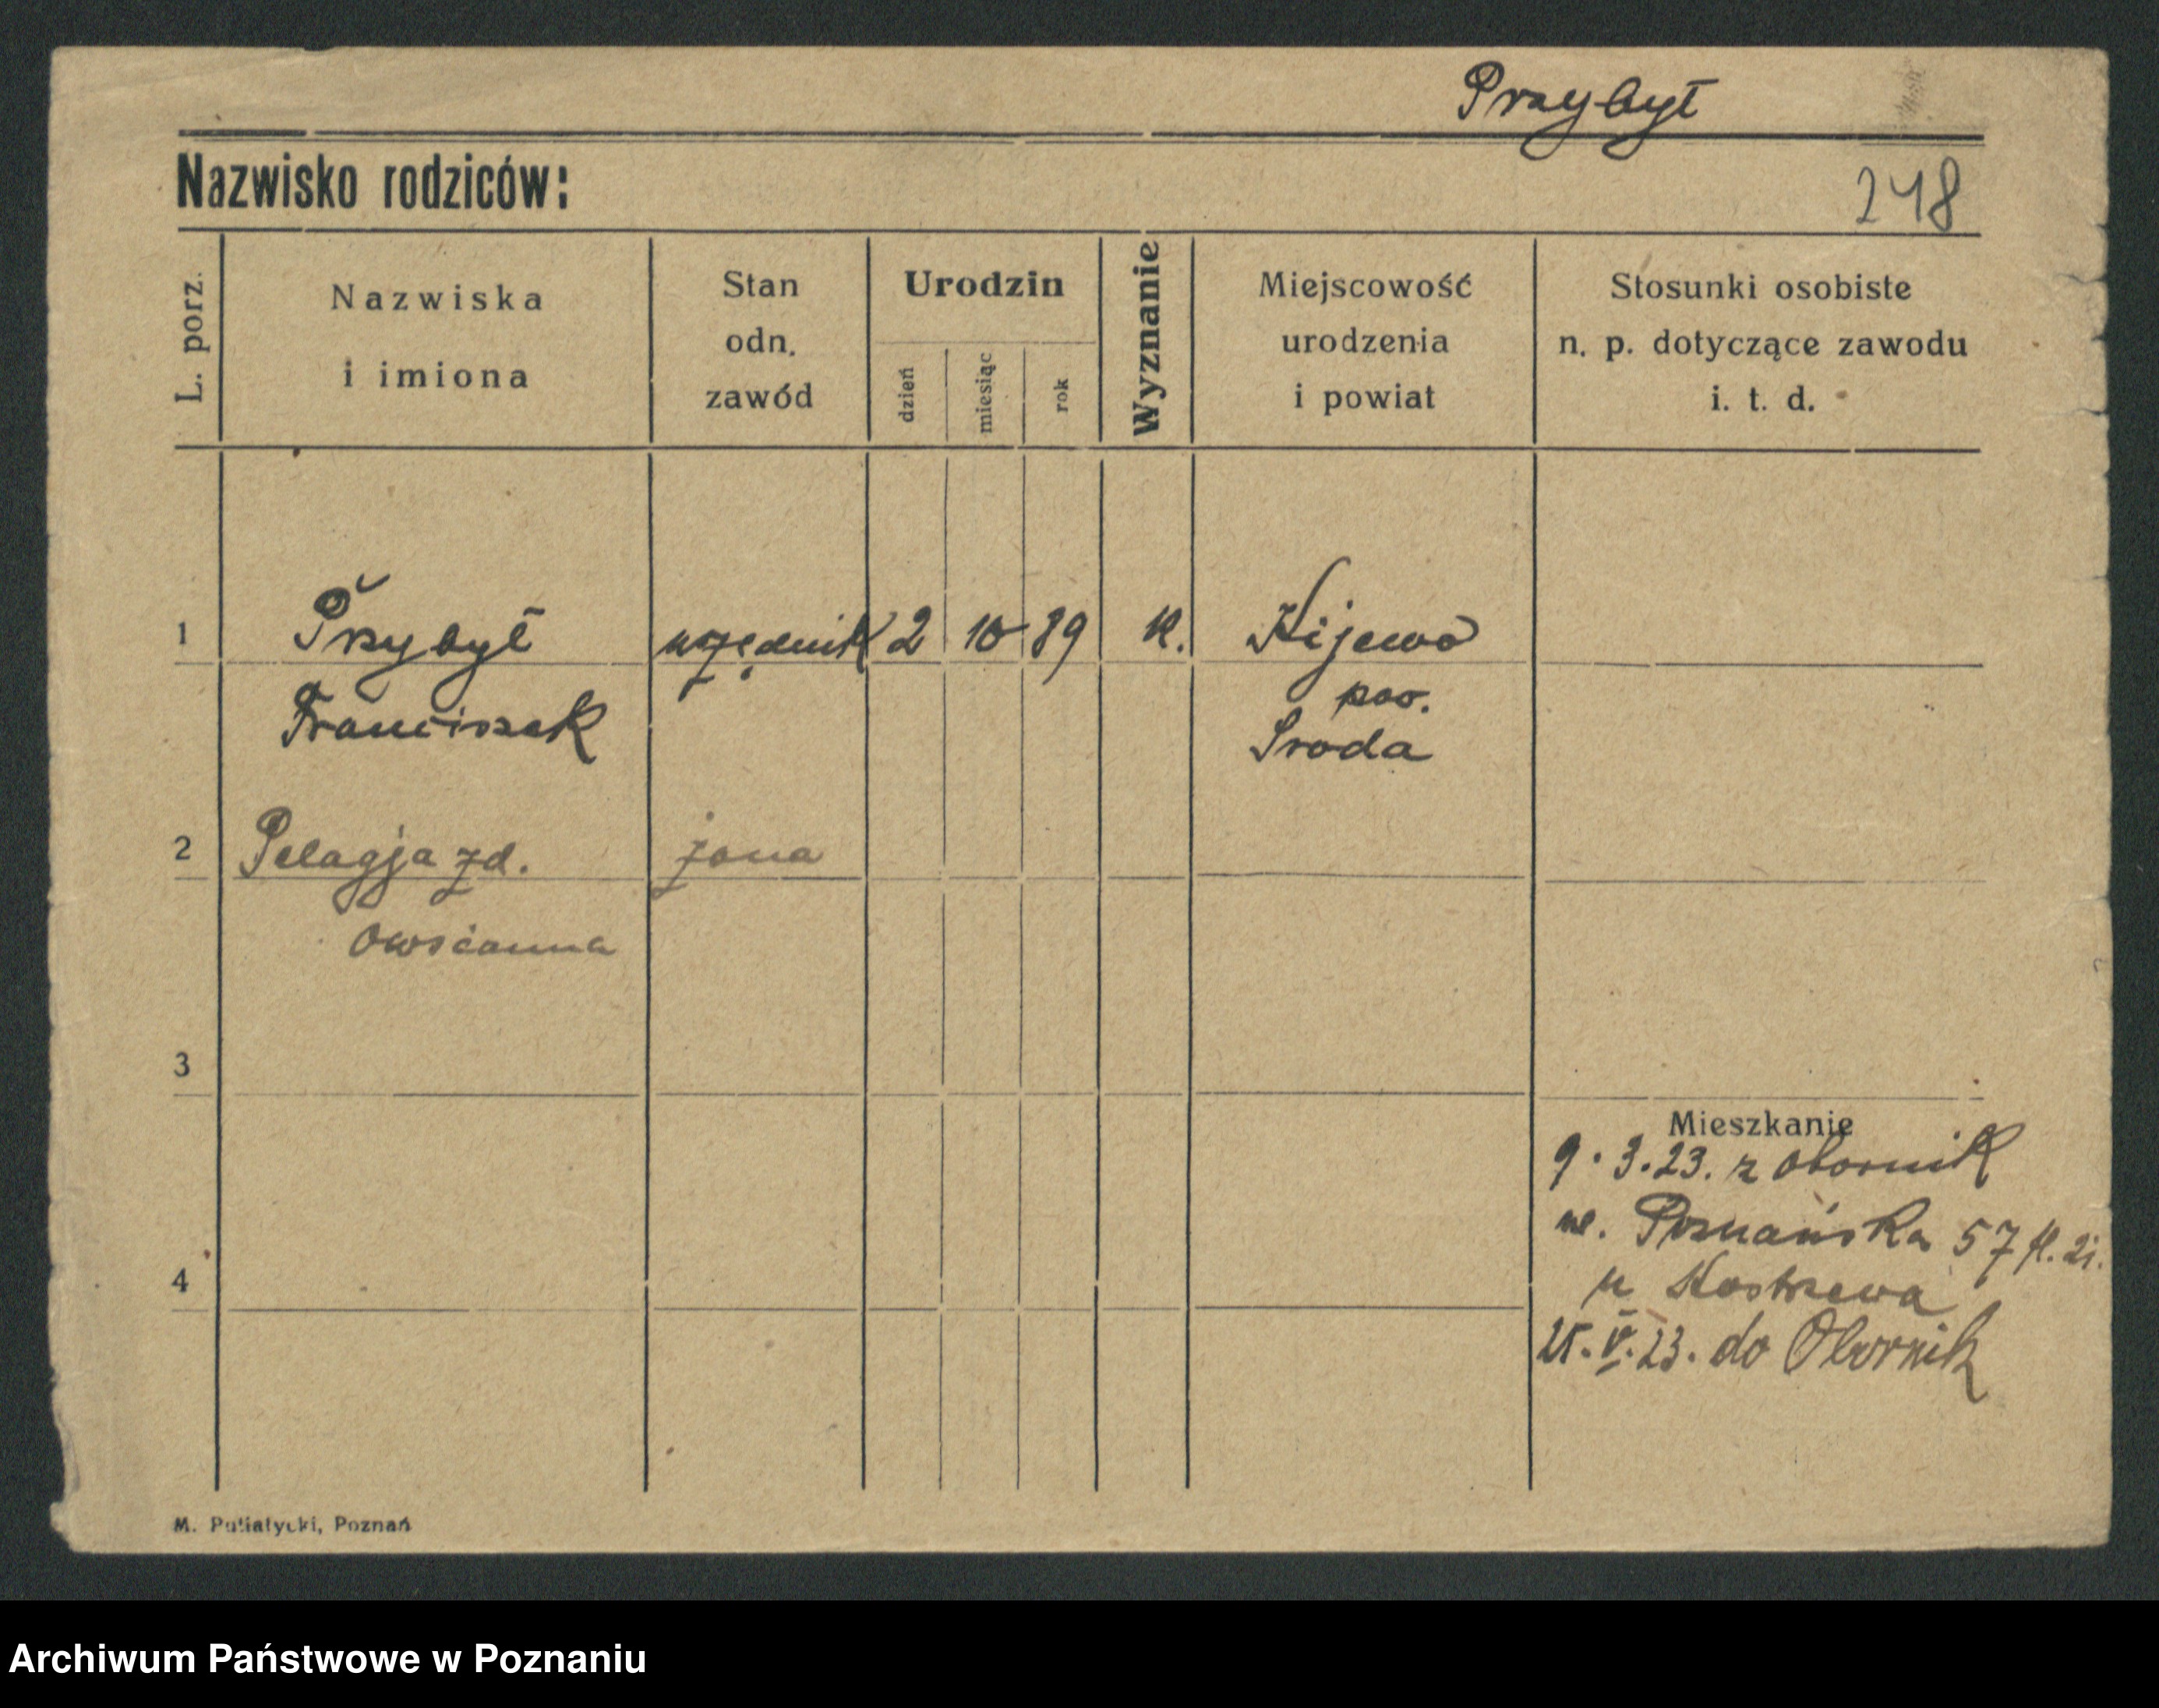 Przybył
Nazwisko rodziców:
248
L. porz.
Nazwiska
i imiona
Stan
odn.
zawód
Urodzin
dzień
miesiąc
rok
Wyznanie
Miejscowość
urodzenia
i powiat
Stosunki osobiste
n. p. dotyczące zawodu
i. t. d.
1 Przybył urzędnik 2 10 89 K. Kijewo
Franciszek pow.
Sroda
2 Pelagja zd. żona
Owsianna
3
Mieszkanie
9.3.23. z Obornik
Poznańska 57
4
u Kostrzewa
V. 23. do Obornik
M. Putiatycki, Poznań
Archiwum Państwowe w Poznaniu